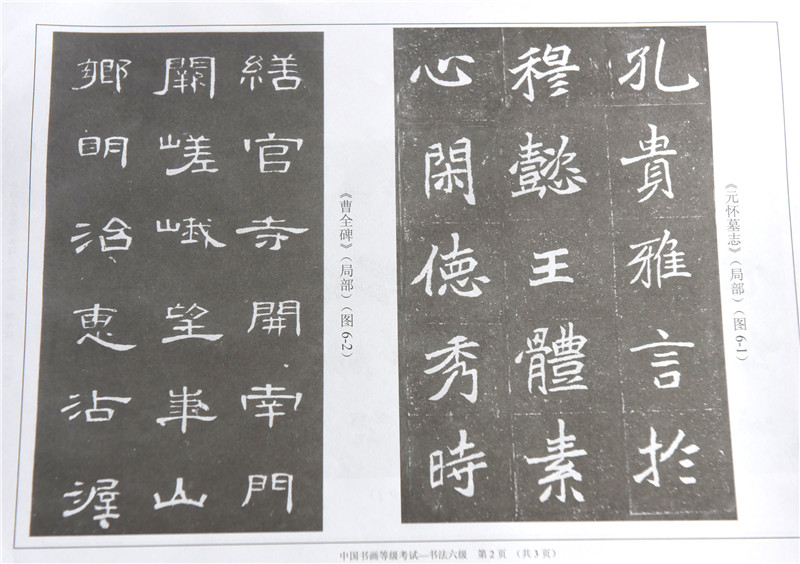 孔貴雅言於
穆懿王體素
心閑德秀時
《元怀墓志》（局部）（图6-1）
繕官寺開南門
闕嵯峨望華山
鄉明治惠沾渥
《曹全碑》（局部）（图6-2）
中国书画等级考试—书法六级 第2页 （共3页）